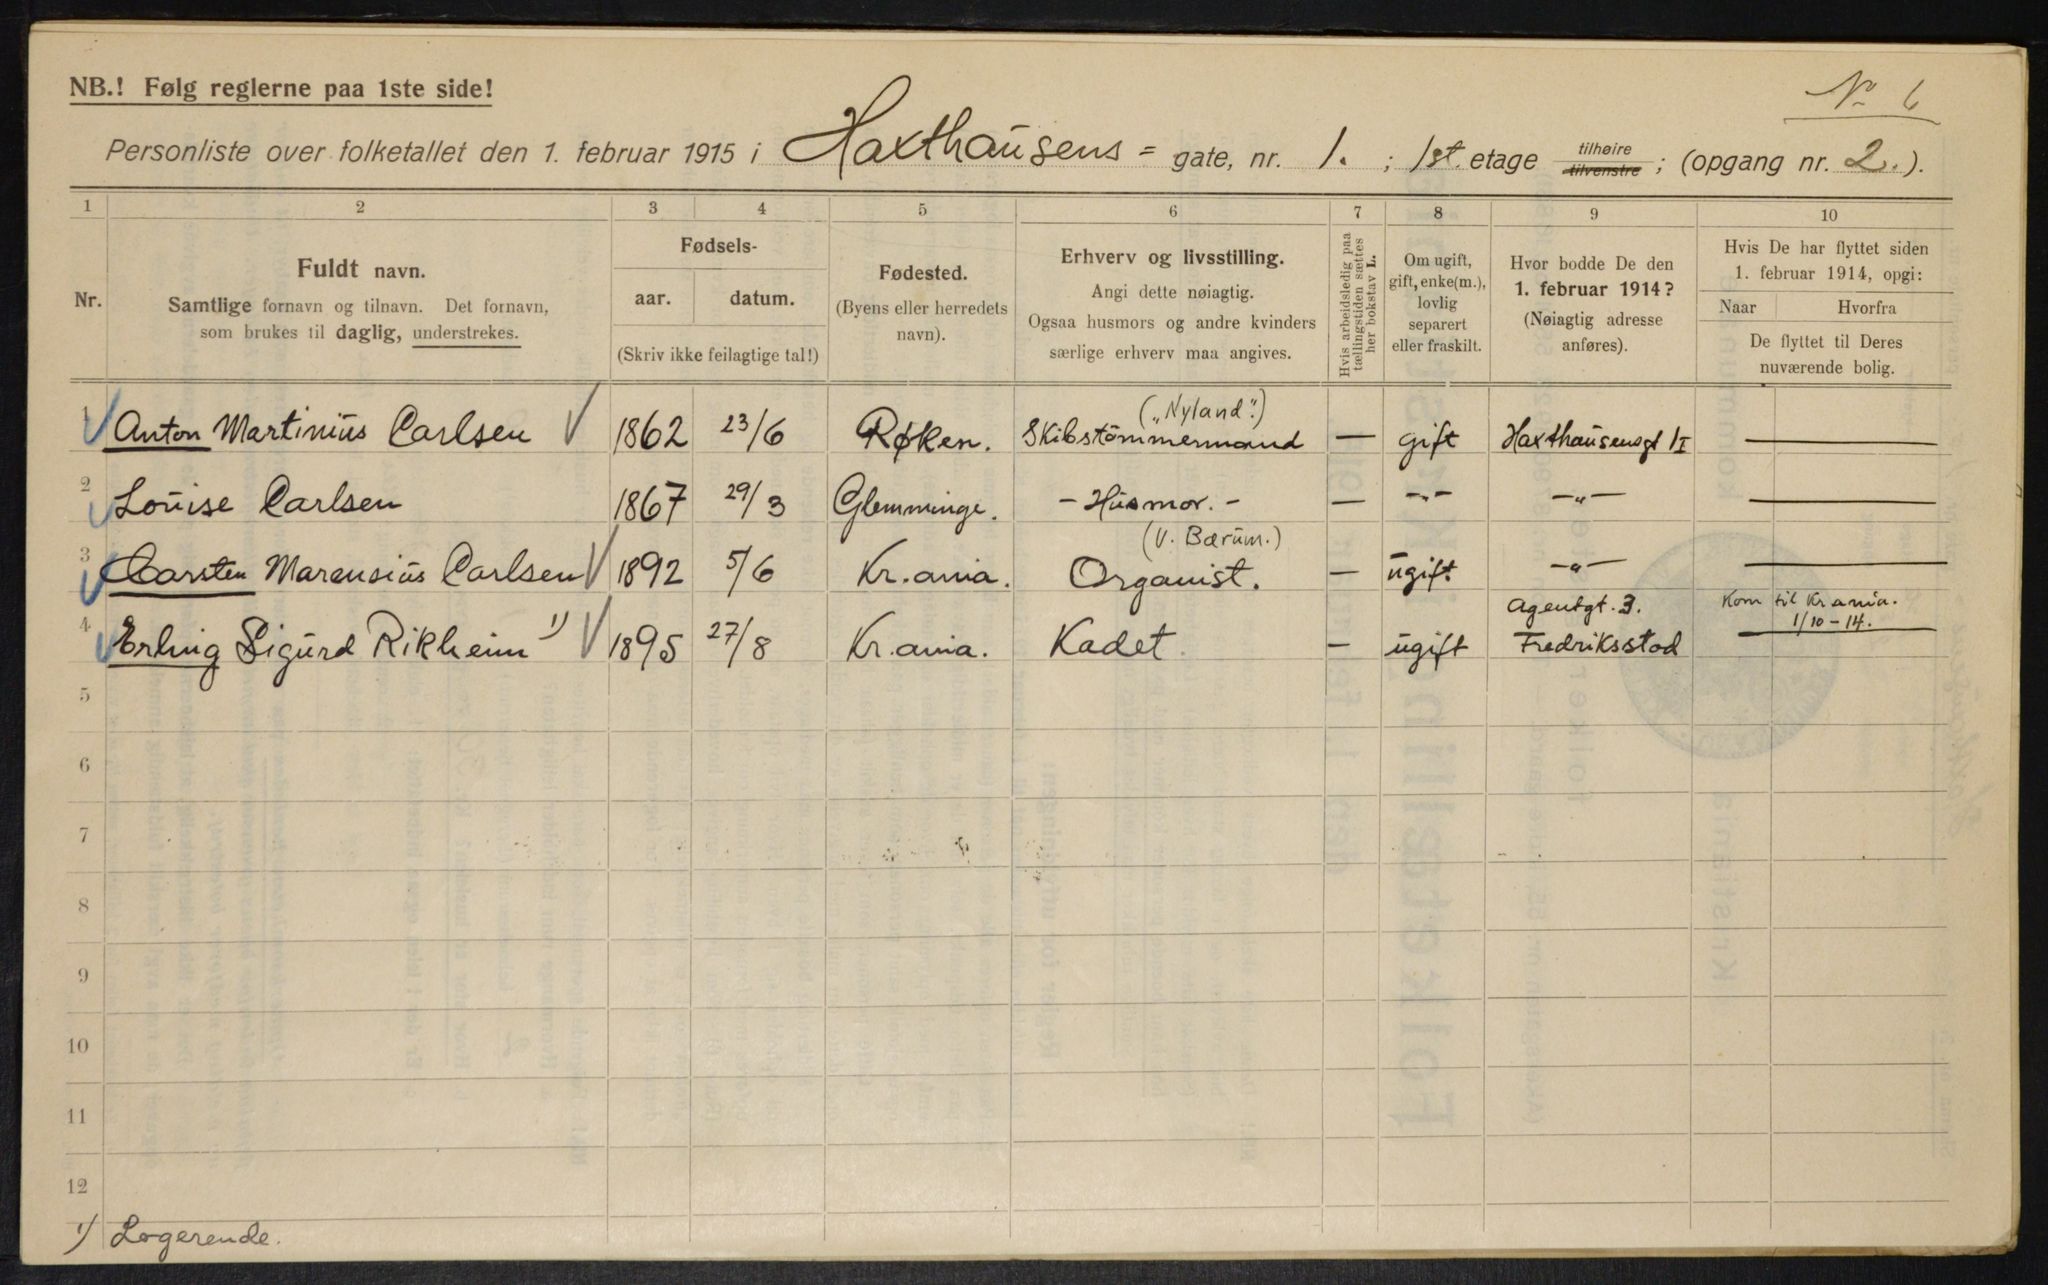 NB.! Følg reglerne paa 1ste side!
No 6
Personliste over folketallet den 1. februar 1915 i Haxthausens = gate, nr. 1. ; 1st. etage tilhøire tilvenstre ; (opgang nr. 2.).
1 2 3 4 5 6 7 8 9 10
Nr.
Fuldt navn.
Samtlige fornavn og tilnavn. Det fornavn,
som brukes til daglig, understrekes.
Fødsels-
aar. datum.
(Skriv ikke feilagtige tal!)
Fødested.
(Byens eller herredets
navn).
Erhverv og livsstilling.
Angi dette nøiagtig.
Ogsaa husmors og andre kvinders
særlige erhverv maa angives.
Hvis arbeidsledig paa
tællingstiden sættes
her bokstav L.
Om ugift,
gift, enke(m.),
lovlig
separert
eller fraskilt.
Hvor bodde De den
1. februar 1914?
(Nøiagtig adresse
anføres).
Hvis De har flyttet siden
1. februar 1914, opgi:
Naar Hvorfra
De flyttet til Deres
nuværende bolig.
("Nyland".)
1 Anton Martinius Carlsen 1862 23/6 Røken. Skibstömmermand — gift Haxthausensgt 1I —
2 Louise Carlsen 1867 29/3 Glemminge. - Husmor. - — -"- -"- —
(V. Bærum.)
3 Carsten Marensius Carlsen 1892 5/6 Kr.ania. Organist. — ugift. -"- —
Agentgt. 3. Kom til Kr.ania.
1/10-14.
4 Erling Sigurd Rikheim 1) 1895 27/8 Kr.ania. Kadet. — ugift Fredriksstad
5
6
7
8
9
10
11
12
1) Logerende.